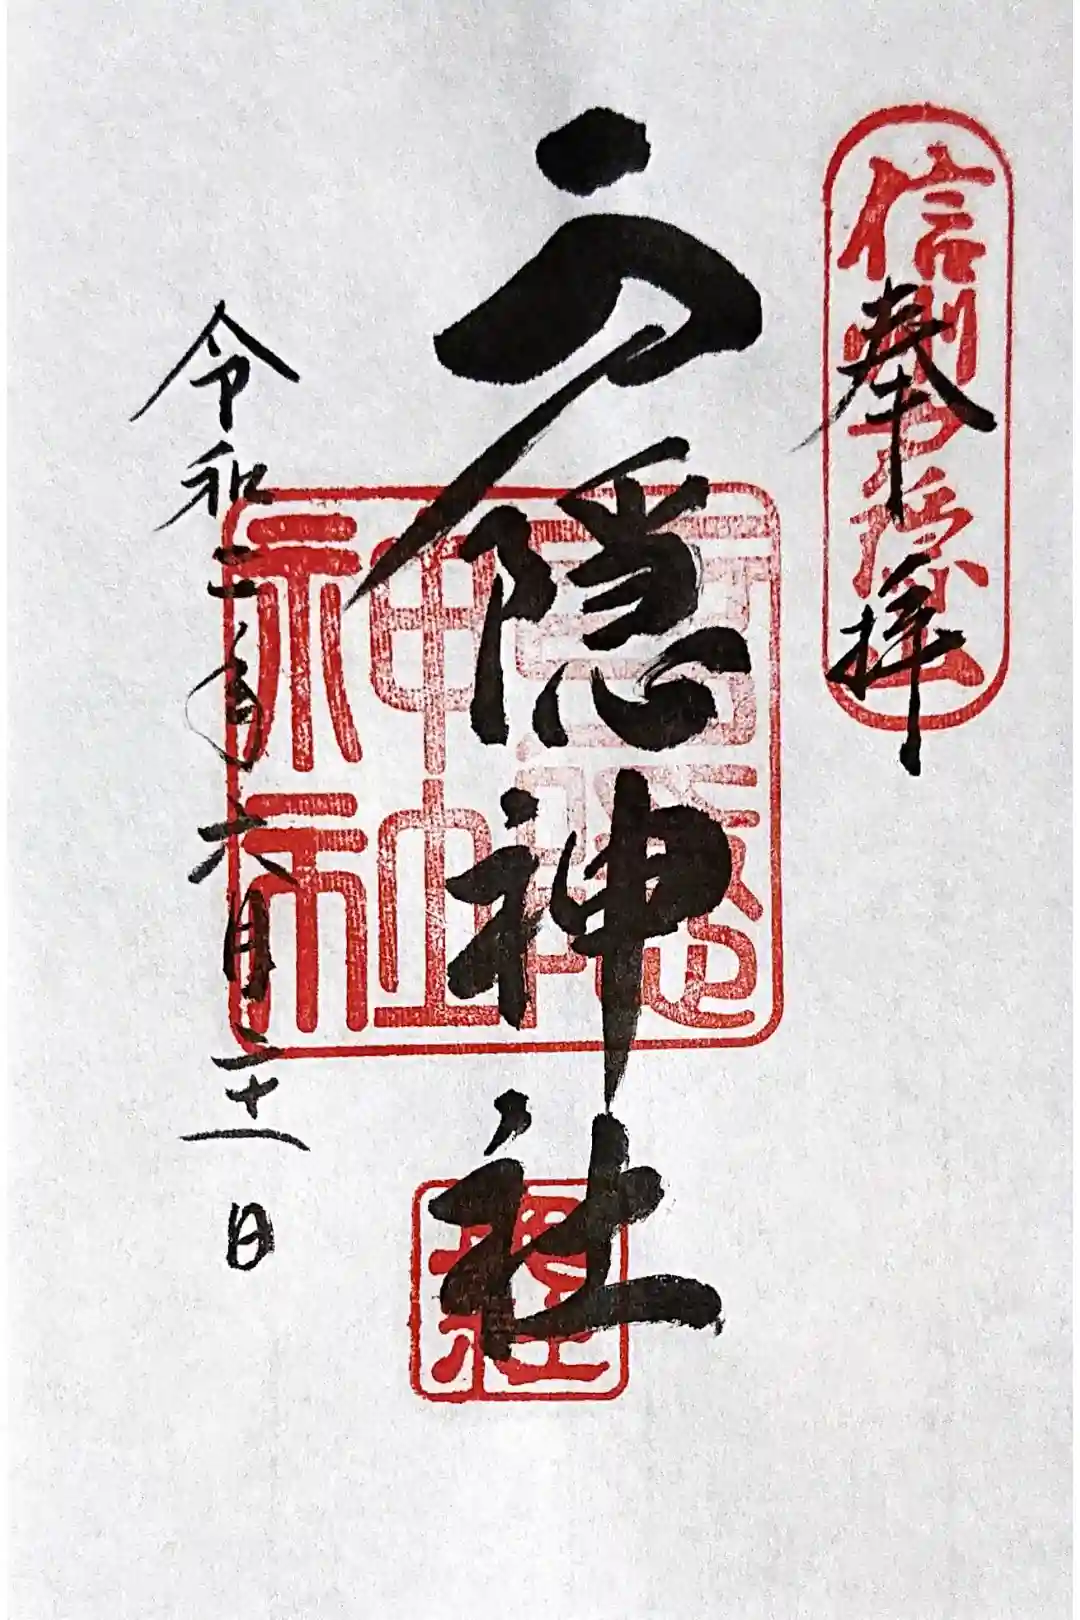 信州戸隠山
奉拝
戸隠神社
戸隠神社
令和二年六月二十一日